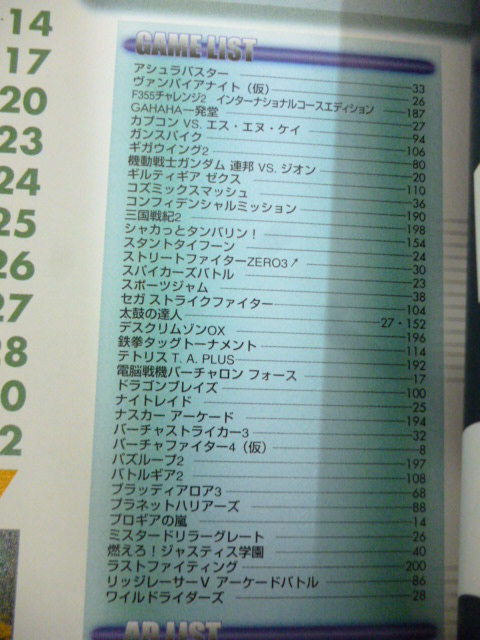 14
17
20
23
24
25
26
27
28
0
2
GAME LIST
アシュラバスター 33
ヴァンパイアナイト（仮） 26
F355チャレンジ2 インターナショナルコースエディション 187
GAHAHA一発堂 27
カプコン VS. エス・エヌ・ケイ 94
ガンスパイク 106
ギガウイング2 80
機動戦士ガンダム 連邦 VS. ジオン 20
ギルティギア ゼクス 110
コズミックスマッシュ 36
コンフィデンシャルミッション 190
三国戦紀2 198
シャカっとタンバリン！ 154
スタントタイフーン 24
ストリートファイターZERO3↗ 30
スパイカーズバトル 23
スポーツジャム 38
セガ ストライクファイター 104
太鼓の達人 27・152
デスクリムゾンOX 196
鉄拳タッグトーナメント 114
テトリス T. A. PLUS 192
電脳戦機バーチャロン フォース 17
ドラゴンブレイズ 100
ナイトレイド 25
ナスカー アーケード 194
バーチャストライカー3 32
バーチャファイター4（仮） 8
パズループ2 197
バトルギア2 108
ブラッディロア3 68
プラネットハリアーズ 88
プロギアの嵐 14
ミスタードリラーグレート 26
燃えろ！ジャスティス学園 40
ラストファイティング 200
リッジレーサーV アーケードバトル 86
ワイルドライダーズ 28
AD LIST